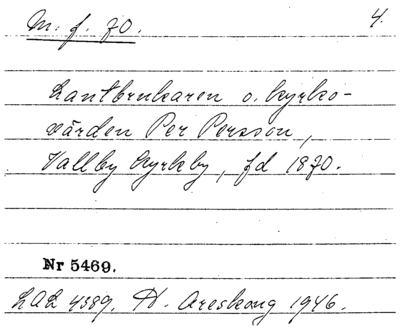 M. f. 70.
4.
Lantbrukaren o. kyrko-
värden Per Persson,
Vallby Kyrkby, fd 1870.
Nr 5469.
LAL 4389. H. Areskoug 1946.